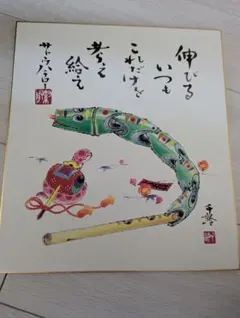 伸びる
いつも
これだけんど
考えて
給え
サトウハチロー